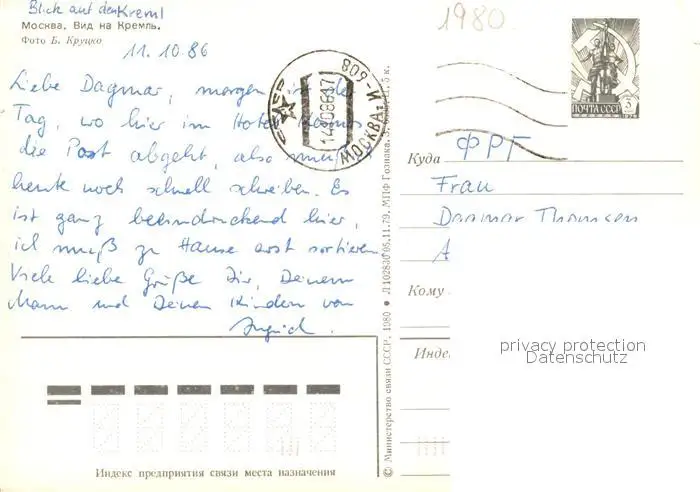 Blick auf den Kreml
Москва. Вид на Кремль.
Фото Б. Круцко
11. 10. 86
Liebe Dagmar, morgen ist der
Tag, wo hier im Hotel Kosmos
die Post abgeht, also muß ich
heute noch schnell schreiben. Es
ist ganz beeindruckend hier,
ich muß zu Hause erst sortieren.
Viele liebe Grüße Dir, Deinem
Mann und Deinen Kindern von
Ingrid.
Индекс предприятия связи места назначения
© Министерство связи СССР, 1980 ● Л 102830 06.11.79. МПФ Гознака. З.
5 к.
1980
СССР
МОСКВА И-608
ПОЧТА СССР
3
Куда ФРГ
Frau
Dagmar Thomsen
A
Кому
Инде
privacy protection
Datenschutz